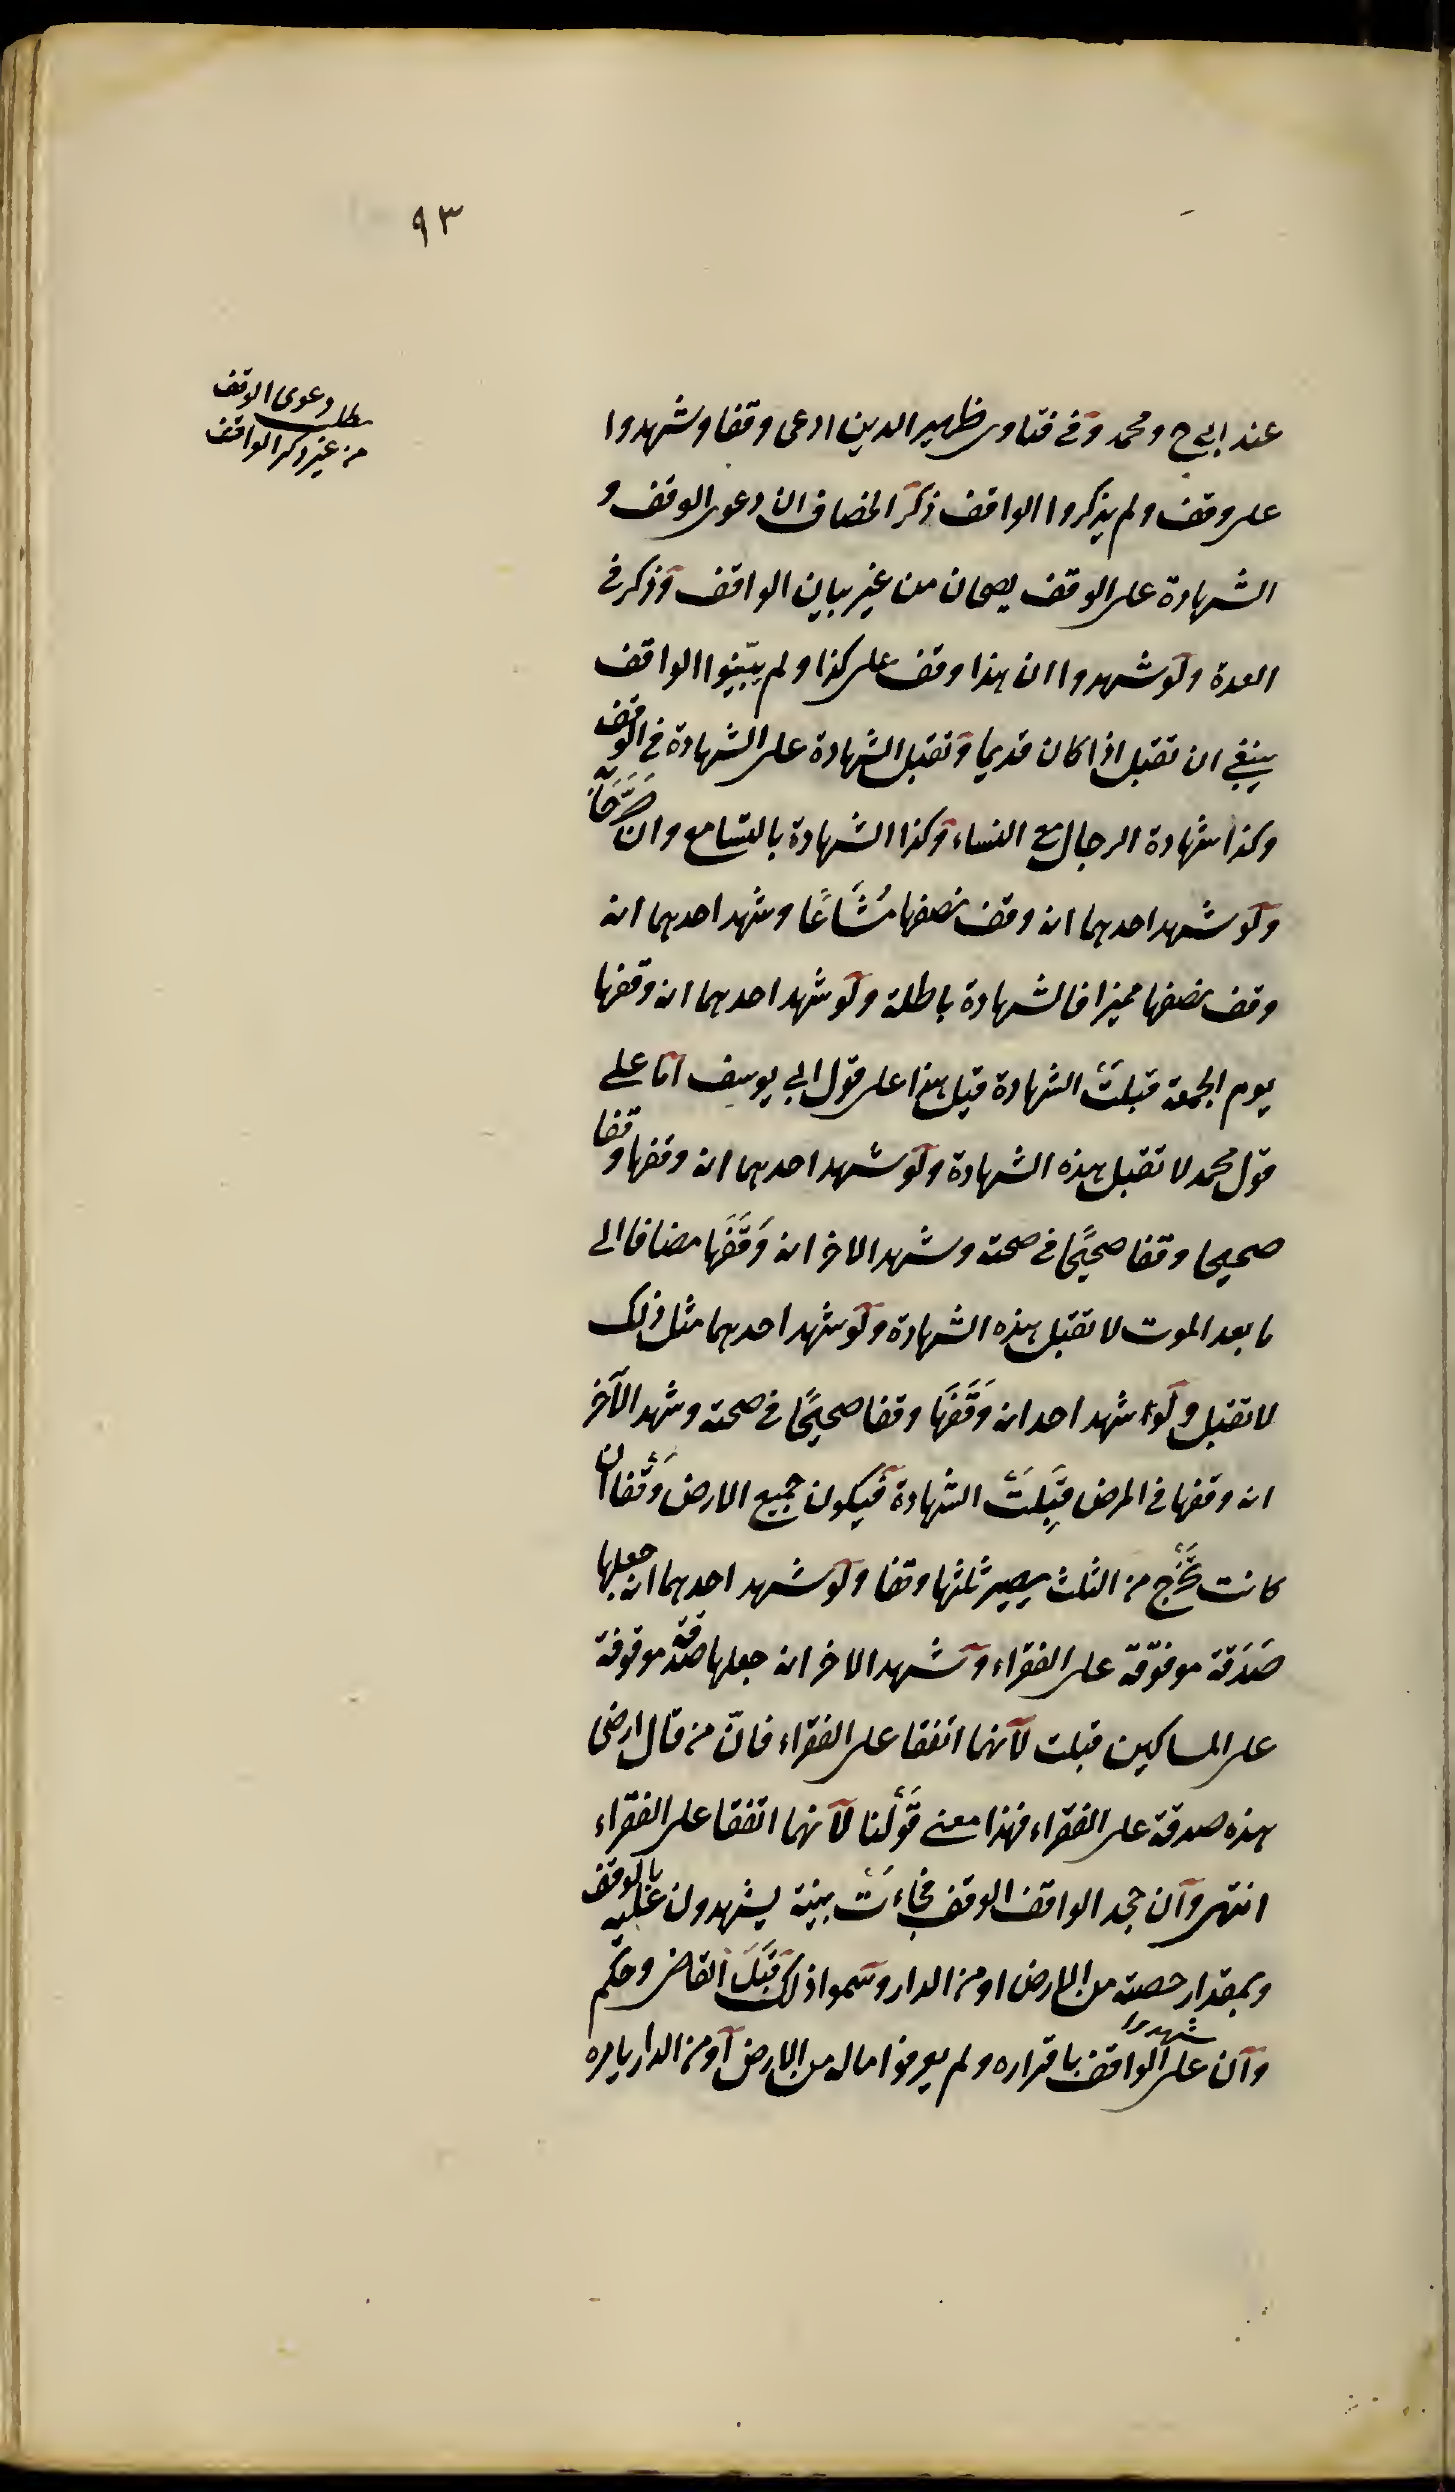 ٩٣
مطلب دعوى الوقف
من غير ذكر الواقف
عند ابي ح ومحمد وفي فتاوى ظهير الدين ادعى وقفا وشهدوا
على وقف ولم يذكروا الواقف ذكر الخصاف ان دعوى الوقف و
الشهادة على الوقف يصحان من غير بيان الواقف وذكر في
العدة ولو شهدوا ان هذا وقف على كذا ولم يبّينوا الواقف
ينبغي ان تقبل اذا كان قديما وتقبل الشهادة على الشهادة في الوقف
وكذا شهادة الرجال مع النساء وكذا الشهادة بالتسامع وان صَرَّحَا
ولو شهد احدهما انه وقف نصفها مُشَاعًا وشهد احدهما انه
وقف نصفها مميزا فالشهادة باطلة ولو شهد احدهما انه وقفها
يوم الجمعة قبلَتْ الشهادة قيل هذا على قول ابي يوسف اما على
قول محمد لا تقبل هذه الشهادة ولو شهد احدهما انه وقفها وقفا
صحيحا وقفا صحيحًا في صحته وشهد الاخر انه وَقَفَهَا مضافا الى
ما بعد الموت لا تقبل هذه الشهادة ولو شهد احدهما مثل ذلك
لا تقبل ولو شهد احد انه وَقَفَهَا وقفا صحيحًا في صحته وشهد الآخر
انه وقفها في المرض قبِلَتْ الشهادة فيكون جميع الارض وَقْفا ان
كانت تَخْرُج من الثلث يصير ثلثها وقفا ولو شهد احدهما انه جعلها
صَدَقة موقوفة على الفقراء وشهد الاخر انه جعلها صدقة موقوفة
على المساكين قبلت لانهما اتفقا على الفقراء فانّ من قال ارضى
هذه صدقة على الفقراء فهذا معنى قَوْلنا لانهما اتفقا على الفقراء
انتهى وان جحد الواقف الوقف فجاءَتْ بينة يشهدون عَليه بالوقف
وبمقدار حصته من الارض او من الدار وسموا ذلك قَبِلَ القاضى وحكم
وان شهدوا على الواقف باقراره ولم يعرفوا ماله من الارض او من الدار يامره